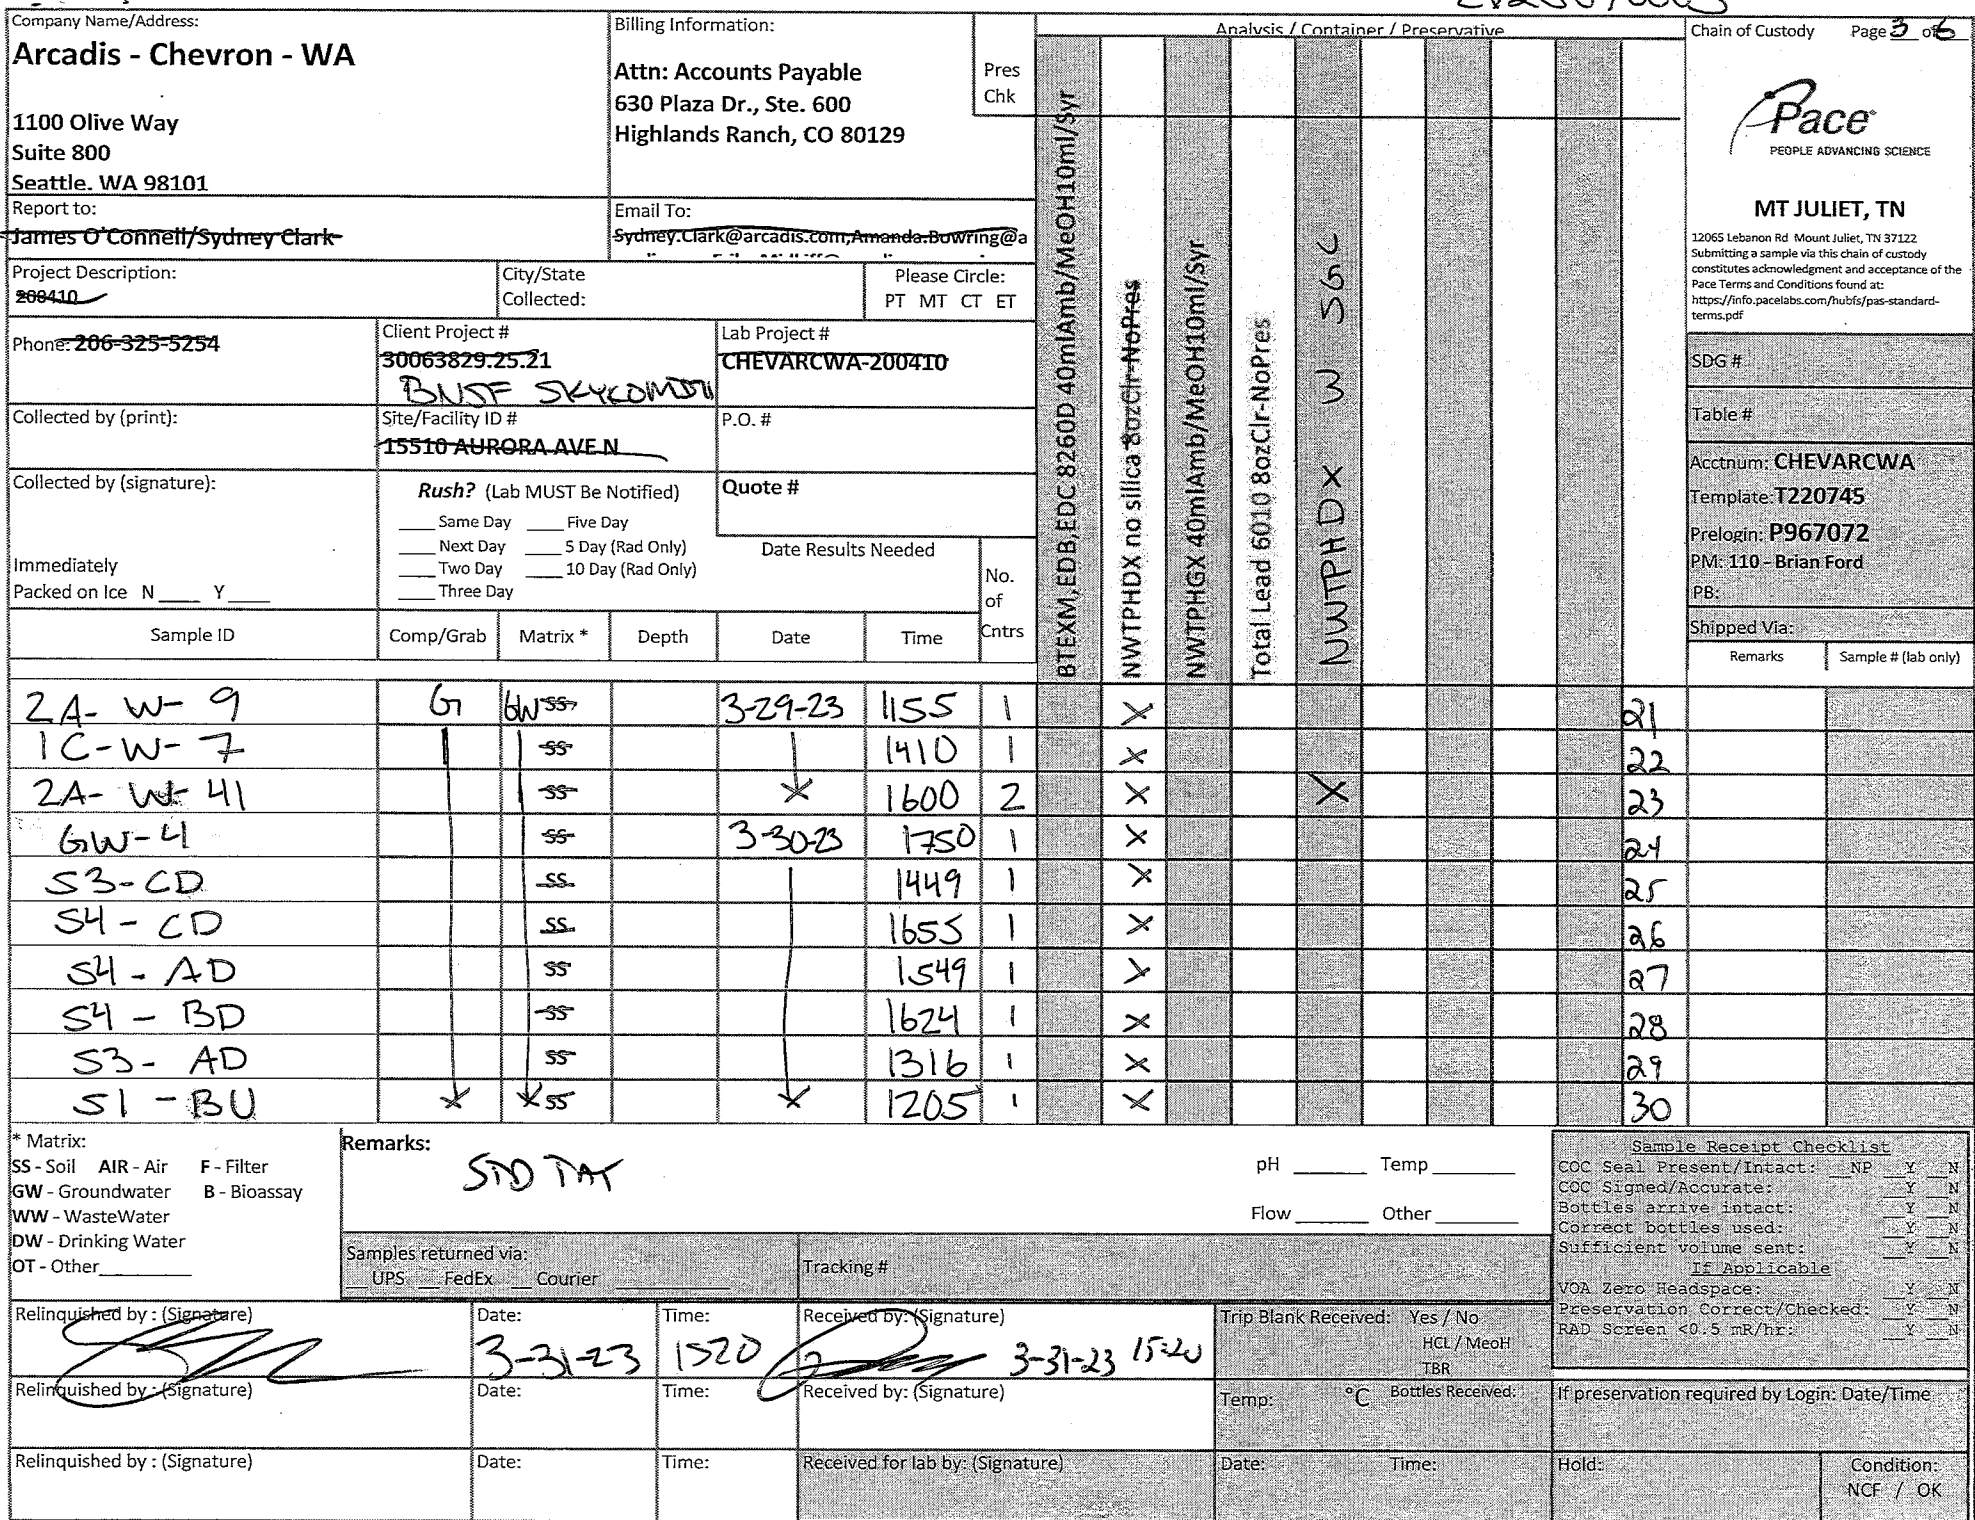 Company Name/Address:
Arcadis - Chevron - WA
1100 Olive Way
Suite 800
Seattle. WA 98101
Billing Information:
Attn: Accounts Payable
630 Plaza Dr., Ste. 600
Highlands Ranch, CO 80129
Pres
Chk
Analysis / Container / Preservative
Chain of Custody Page 3 of 6
Pace
PEOPLE ADVANCING SCIENCE
MT JULIET, TN
12065 Lebanon Rd Mount Juliet, TN 37122
Submitting a sample via this chain of custody
constitutes acknowledgment and acceptance of the
Pace Terms and Conditions found at:
https://info.pacelabs.com/hubfs/pas-standard-
terms.pdf
Report to:
James O'Connell/Sydney Clark
Email To:
Sydney.Clark@arcadis.com,Amanda.Bowring@a
Project Description:
200410
City/State
Collected:
Please Circle:
PT MT CT ET
Phone: 206-325-5254
Client Project #
30063829.25.21
BNSF SKYKOMISH
Lab Project #
CHEVARCWA-200410
Collected by (print):
Site/Facility ID #
15510 AURORA AVE N
P.O. #
Collected by (signature):
Rush? (Lab MUST Be Notified)
Same Day Five Day
Next Day 5 Day (Rad Only)
Two Day 10 Day (Rad Only)
Three Day
Quote #
Date Results Needed
Immediately
Packed on Ice N Y
No.
of
Cntrs
BTEXM,EDB,EDC 8260D 40mlAmb/MeOH10ml/Syr
NWTPHDX no silica 8ozClr-NoPres
NWTPHGX 40mlAmb/MeOH10ml/Syr
Total Lead 6010 8ozClr-NoPres
NWTPHDX 3 SGC
SDG #
Table #
Acctnum: CHEVARCWA
Template: T220745
Prelogin: P967072
PM: 110 - Brian Ford
PB:
Shipped Via:
Sample ID Comp/Grab Matrix * Depth Date Time Remarks Sample # (lab only)
2A- W- 9 G GW SS 3-29-23 1155 1 X 21
1C-W-7 SS 1410 1 X 22
2A- W- 41 SS 1600 2 X X 23
GW-4 SS 3-30-23 1750 1 X 24
S3-CD SS 1449 1 X 25
S4 - CD SS 1655 1 X 26
S4 - AD SS 1549 1 X 27
S4 - BD SS 1624 1 X 28
S3- AD SS 1316 1 X 29
S1 - BU SS 1205 1 X 30
* Matrix:
SS - Soil AIR - Air F - Filter
GW - Groundwater B - Bioassay
WW - WasteWater
DW - Drinking Water
OT - Other
Remarks:
STD TAT
pH Temp
Flow Other
Samples returned via:
UPS FedEx Courier
Tracking #
Sample Receipt Checklist
COC Seal Present/Intact: NP Y N
COC Signed/Accurate: Y N
Bottles arrive intact: Y N
Correct bottles used: Y N
Sufficient volume sent: Y N
If Applicable
VOA Zero Headspace: Y N
Preservation Correct/Checked: Y N
RAD Screen <0.5 mR/hr: Y N
Relinquished by : (Signature) Date: Time: Received by: (Signature)
3-31-23 1520 3-31-23 15:20
Trip Blank Received: Yes / No
HCL / MeoH
TBR
Relinquished by : (Signature) Date: Time: Received by: (Signature)
Temp: °C Bottles Received:
If preservation required by Login: Date/Time
Relinquished by : (Signature) Date: Time: Received for lab by: (Signature) Date: Time: Hold:
Condition:
NCF / OK